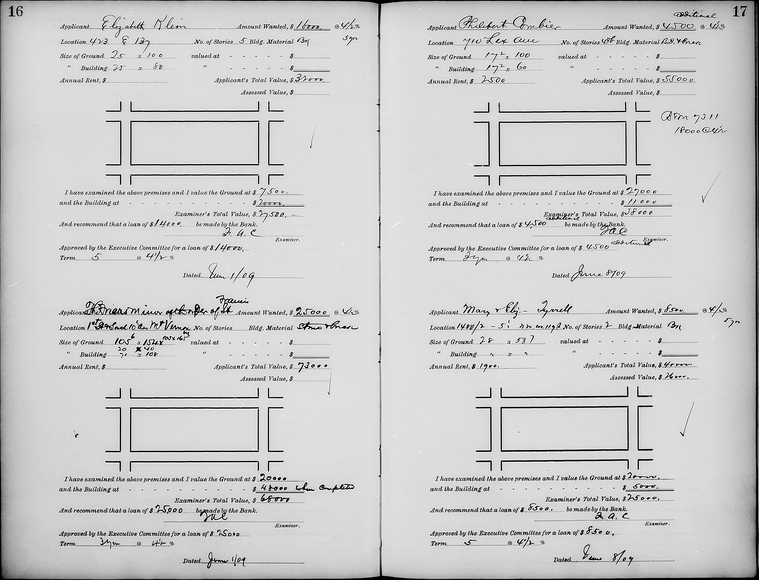 16
Applicant Elizabeth Klein Amount Wanted, $ 16000 @ 4½ %
Location 423 E 137 No. of Stories 5 Bldg. Material Bk 5 yrs
Size of Ground 25 x 100 valued at - - - - $
" Building 25 x 80 " - - - - $
Annual Rent, $ Applicant's Total Value, $ 32000
Assessed Value, $
I have examined the above premises and I value the Ground at $ 7500.
and the Building at - - - - - - - - $ 20000.
Examiner's Total Value, $ 27,500.
And recommend that a loan of $ 14000. be made by the Bank.
F. A. C
Examiner.
Approved by the Executive Committee for a loan of $ 14000.
Term 5 @ 4½ %
Dated June 1/09
Applicant Minor of the order of St Francis Amount Wanted, $ 25000 @ 4½ %
Location Mt Vernon No. of Stories Bldg. Material Stone & brick
Size of Ground 105 x valued at - - - - $
" Building " - - - - $
Annual Rent, $ Applicant's Total Value, $ 73000
Assessed Value, $
I have examined the above premises and I value the Ground at $ 20000
and the Building at - - - - - - - - $ 48000 when completed
Examiner's Total Value, $ 68000
And recommend that a loan of $ 25000 be made by the Bank.
FAC
Examiner.
Approved by the Executive Committee for a loan of $ 25000
Term 3 yrs @ 4½ %
Dated June 1/09
17
additional
Applicant Philibert Combier Amount Wanted, $ 4500 @ 4½ %
Location 710 Lex Ave No. of Stories 4 Bldg. Material
Size of Ground 17² x 100 valued at - - - - $
" Building 17² x 60 " - - - - $
Annual Rent, $ 2500 Applicant's Total Value, $ 55000
Assessed Value, $
7311
18000 @ 4½
I have examined the above premises and I value the Ground at $ 27000
and the Building at - - - - - - - - $ 11000
Examiner's Total Value, $ 38000
And recommend that a loan of $ 4,500 additional be made by the Bank.
FAC
Examiner.
Approved by the Executive Committee for a loan of $ 4500 additional
Term 3 yrs @ 4½
Dated June 8/09
Applicant Mary & Eliz - Tyrrell Amount Wanted, $ 8500 @ 4½ %
Location No. of Stories 2 Bldg. Material Bk 5 yrs
Size of Ground 28 x 53 valued at - - - - $
" Building " " " - - - - $
Annual Rent, $ 1900. Applicant's Total Value, $ 40000
Assessed Value, $ 26000.
I have examined the above premises and I value the Ground at $ 20000.
and the Building at - - - - - - - - $ 5000.
Examiner's Total Value, $ 25000.
And recommend that a loan of $ 8500. be made by the Bank.
F. A. C
Examiner.
Approved by the Executive Committee for a loan of $ 8500.
Term 5 @ 4½ %
Dated June 8/09